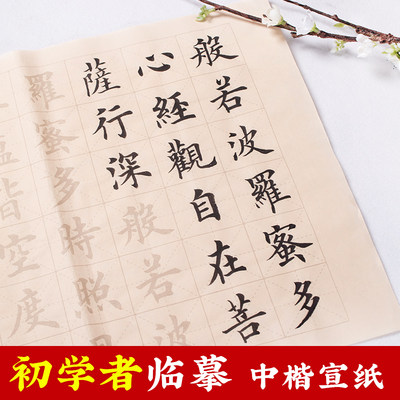 般若波羅蜜多
心經觀自在菩
薩行深般若波
羅蜜多時照
皆空度
初学者临摹 中楷宣纸